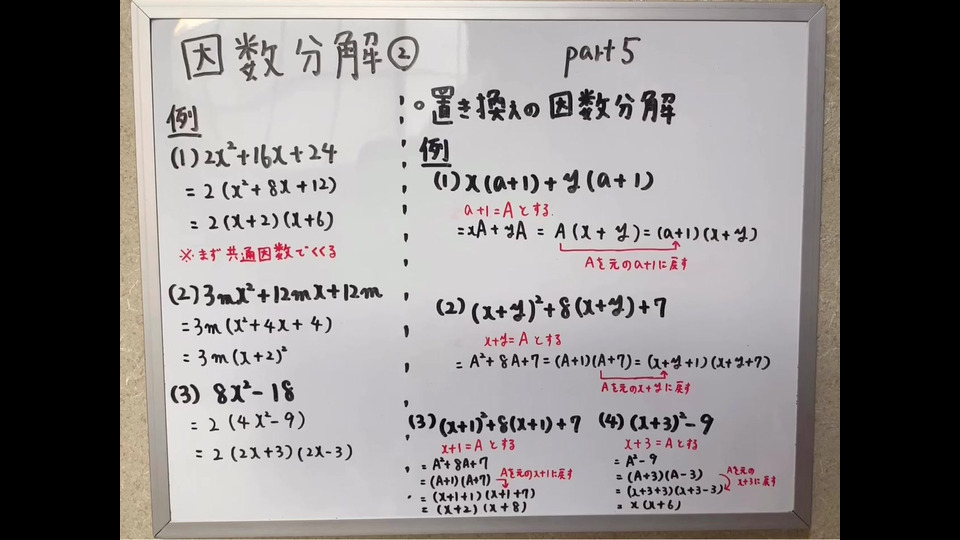 因数分解②
part5
例
(1) 2x²+16x+24
= 2(x²+8x+12)
= 2(x+2)(x+6)
※まず共通因数でくくる
(2) 3mx²+12mx+12m
= 3m(x²+4x+4)
= 3m(x+2)²
(3) 8x²-18
= 2(4x²-9)
= 2(2x+3)(2x-3)
○置き換えの因数分解
例
(1) x(a+1)+y(a+1)
a+1=Aとする.
= xA+yA = A(x+y) = (a+1)(x+y)
Aを元のa+1に戻す
(2) (x+y)²+8(x+y)+7
x+y=Aとする
= A²+8A+7 = (A+1)(A+7) = (x+y+1)(x+y+7)
Aを元のx+yに戻す
(3) (x+1)²+8(x+1)+7
x+1=Aとする
= A²+8A+7
= (A+1)(A+7)
Aを元のx+1に戻す
= (x+1+1)(x+1+7)
= (x+2)(x+8)
(4) (x+3)²-9
x+3=Aとする
= A²-9
= (A+3)(A-3)
Aを元の
x+3に戻す
= (x+3+3)(x+3-3)
= x(x+6)